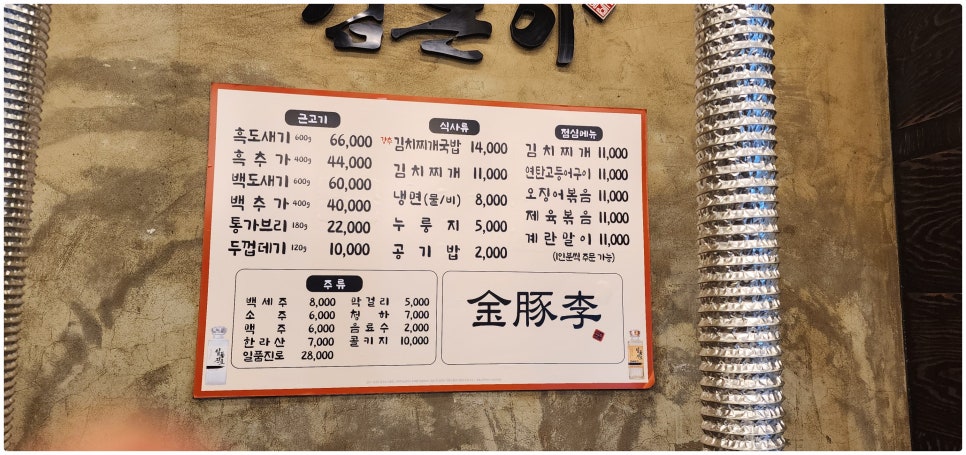 김돈이
근고기
흑도새기 600g 66,000
흑추가 400g 44,000
백도새기 600g 60,000
백추가 400g 40,000
통가브리 180g 22,000
두껍데기 120g 10,000
식사류
강추 김치찌개국밥 14,000
김치찌개 11,000
냉면(물/비) 8,000
누룽지 5,000
공기밥 2,000
점심메뉴
김치찌개 11,000
연탄고등어구이 11,000
오징어볶음 11,000
제육볶음 11,000
계란말이 11,000
(1인분씩 주문 가능)
주류
백세주 8,000 막걸리 5,000
소주 6,000 청하 7,000
맥주 6,000 음료수 2,000
한라산 7,000 콜키지 10,000
일품진로 28,000
金豚李